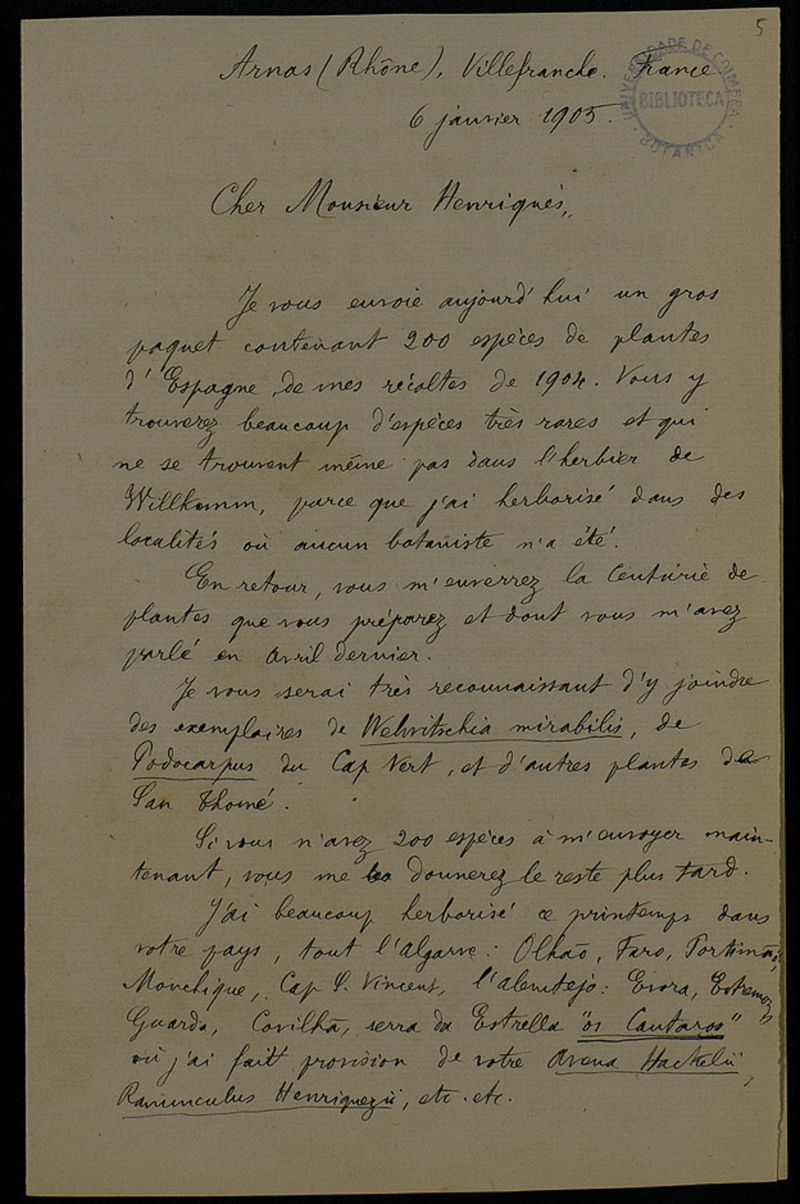 5
Arnas (Rhône), Villefranche. France
UNIVERSIDADE DE COIMBRA
BIBLIOTECA
BOTANICA
6 janvier 1905.
Cher Monsieur Henriqués,
Je vous envoie aujourd'hui un gros
paquet contenant 200 espèces de plantes
d'Espagne, de mes récoltes de 1904. Vous y
trouverez beaucoup d'espèces très rares et qui
ne se trouvent même pas dans l'herbier de
Willkomm, parce que j'ai herborisé dans des
localités où aucun botaniste n'a été.
En retour, vous m'enverrez la Centurie de
plantes que vous préparez et dont vous m'avez
parlé en Avril dernier.
Je vous serai très reconnaissant d'y joindre
des exemplaires de Welwitschia mirabilis, de
Podocarpus du Cap Vert, et d'autres plantes de
San Thomé.
Si vous n'avez 200 espèces à m'envoyer main-
tenant, vous me donnerez le reste plus tard.
J'ai beaucoup herborisé ce printemps dans
votre pays, tout l'Algarve: Olhão, Faro, Portimão,
Monchique, Cap S. Vincent, l'alemtejo: Evora, Estremoz,
Guarda, Covilhã, serra da Estrella "os Cantaros"
où j'ai fait provision de votre Avena Hackelii,
Ranunculus Henriquezii, etc. etc.